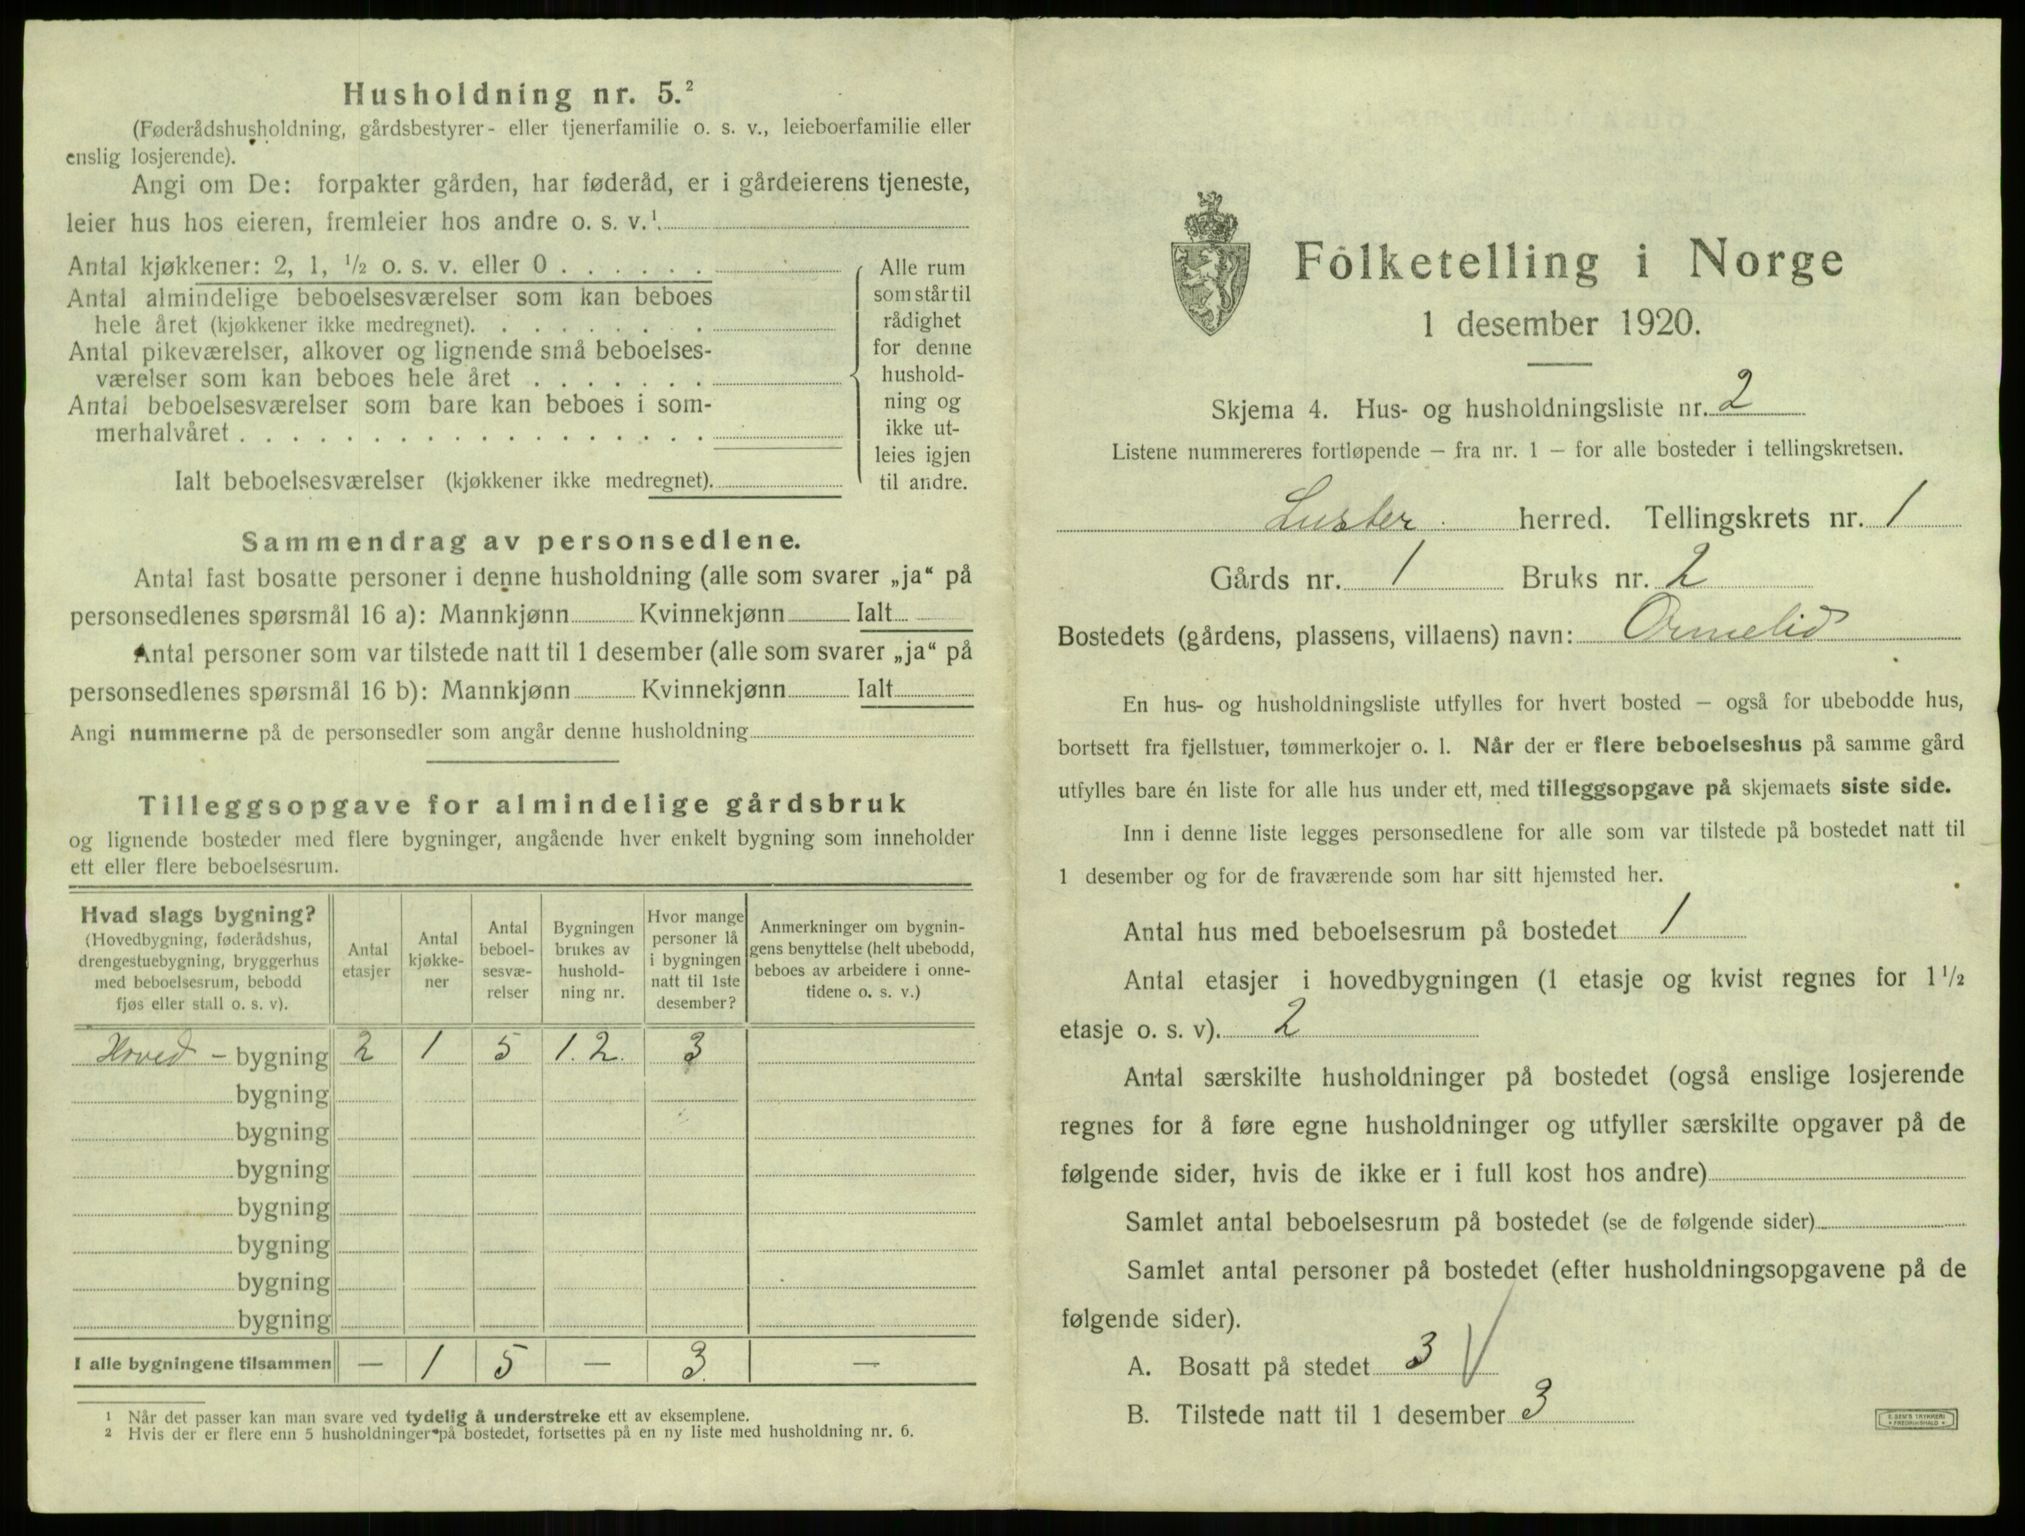 Husholdning nr. 5.²
(Føderådshusholdning, gårdsbestyrer- eller tjenerfamilie o. s. v., leieboerfamilie eller
enslig losjerende).
Angi om De: forpakter gården, har føderåd, er i gårdeierens tjeneste,
leier hus hos eieren, fremleier hos andre o. s. v.¹
Antal kjøkkener: 2, 1, ½ o. s. v. eller 0 . . . . . .
Antal almindelige beboelsesværelser som kan beboes
hele året (kjøkkener ikke medregnet). . . . . . . . .
Antal pikeværelser, alkover og lignende små beboelses-
værelser som kan beboes hele året . . . . . . .
Antal beboelsesværelser som bare kan beboes i som-
merhalvåret . . . . . . . . . . . . . . . . . .
Ialt beboelsesværelser (kjøkkener ikke medregnet).
Alle rum
som står til
rådighet
for denne
hushold-
ning og
ikke ut-
leies igjen
til andre.
Sammendrag av personsedlene.
Antal fast bosatte personer i denne husholdning (alle som svarer „ja“ på
personsedlenes spørsmål 16 a): Mannkjønn Kvinnekjønn Ialt
Antal personer som var tilstede natt til 1 desember (alle som svarer „ja“ på
personsedlenes spørsmål 16 b): Mannkjønn Kvinnekjønn Ialt
Angi nummerne på de personsedler som angår denne husholdning
Tilleggsopgave for almindelige gårdsbruk
og lignende bosteder med flere bygninger, angående hver enkelt bygning som inneholder
ett eller flere beboelsesrum.
Hvad slags bygning?
(Hovedbygning, føderådshus,
drengestuebygning, bryggerhus
med beboelsesrum, bebodd
fjøs eller stall o. s. v).
Antal
etasjer
Antal
kjøkke-
ner
Antal
beboel-
sesvæ-
relser
Bygningen
brukes av
hushold-
ning nr.
Hvor mange
personer lå
i bygningen
natt til 1ste
desember?
Anmerkninger om bygnin-
gens benyttelse (helt ubebodd,
beboes av arbeidere i onne-
tidene o. s. v.)
Hoved - bygning 2 1 5 1.2. 3
bygning
bygning
bygning
bygning
bygning
bygning
bygning
I alle bygningene tilsammen — 1 5 — 3. —
¹ Når det passer kan man svare ved tydelig å understreke ett av eksemplene.
² Hvis der er flere enn 5 husholdninger på bostedet, fortsettes på en ny liste med husholdning nr. 6.
Folketelling i Norge
1 desember 1920.
Skjema 4. Hus- og husholdningsliste nr. 2
Listene nummereres fortløpende – fra nr. 1 – for alle bosteder i tellingskretsen.
Luster herred. Tellingskrets nr. 1
Gårds nr. 1 Bruks nr. 2
Bostedets (gårdens, plassens, villaens) navn: Ormelid
En hus- og husholdningsliste utfylles for hvert bosted – også for ubebodde hus,
bortsett fra fjellstuer, tømmerkojer o. l. Når der er flere beboelseshus på samme gård
utfylles bare én liste for alle hus under ett, med tilleggsopgave på skjemaets siste side.
Inn i denne liste legges personsedlene for alle som var tilstede på bostedet natt til
1 desember og for de fraværende som har sitt hjemsted her.
Antal hus med beboelsesrum på bostedet 1
Antal etasjer i hovedbygningen (1 etasje og kvist regnes for 1½
etasje o. s. v). 2
Antal særskilte husholdninger på bostedet (også enslige losjerende
regnes for å føre egne husholdninger og utfyller særskilte opgaver på de
følgende sider, hvis de ikke er i full kost hos andre)
Samlet antal beboelsesrum på bostedet (se de følgende sider)
Samlet antal personer på bostedet (efter husholdningsopgavene på de
følgende sider).
A. Bosatt på stedet 3 V
B. Tilstede natt til 1 desember 3
E. SEM'S TRYKKERI
FREDRIKSHALD